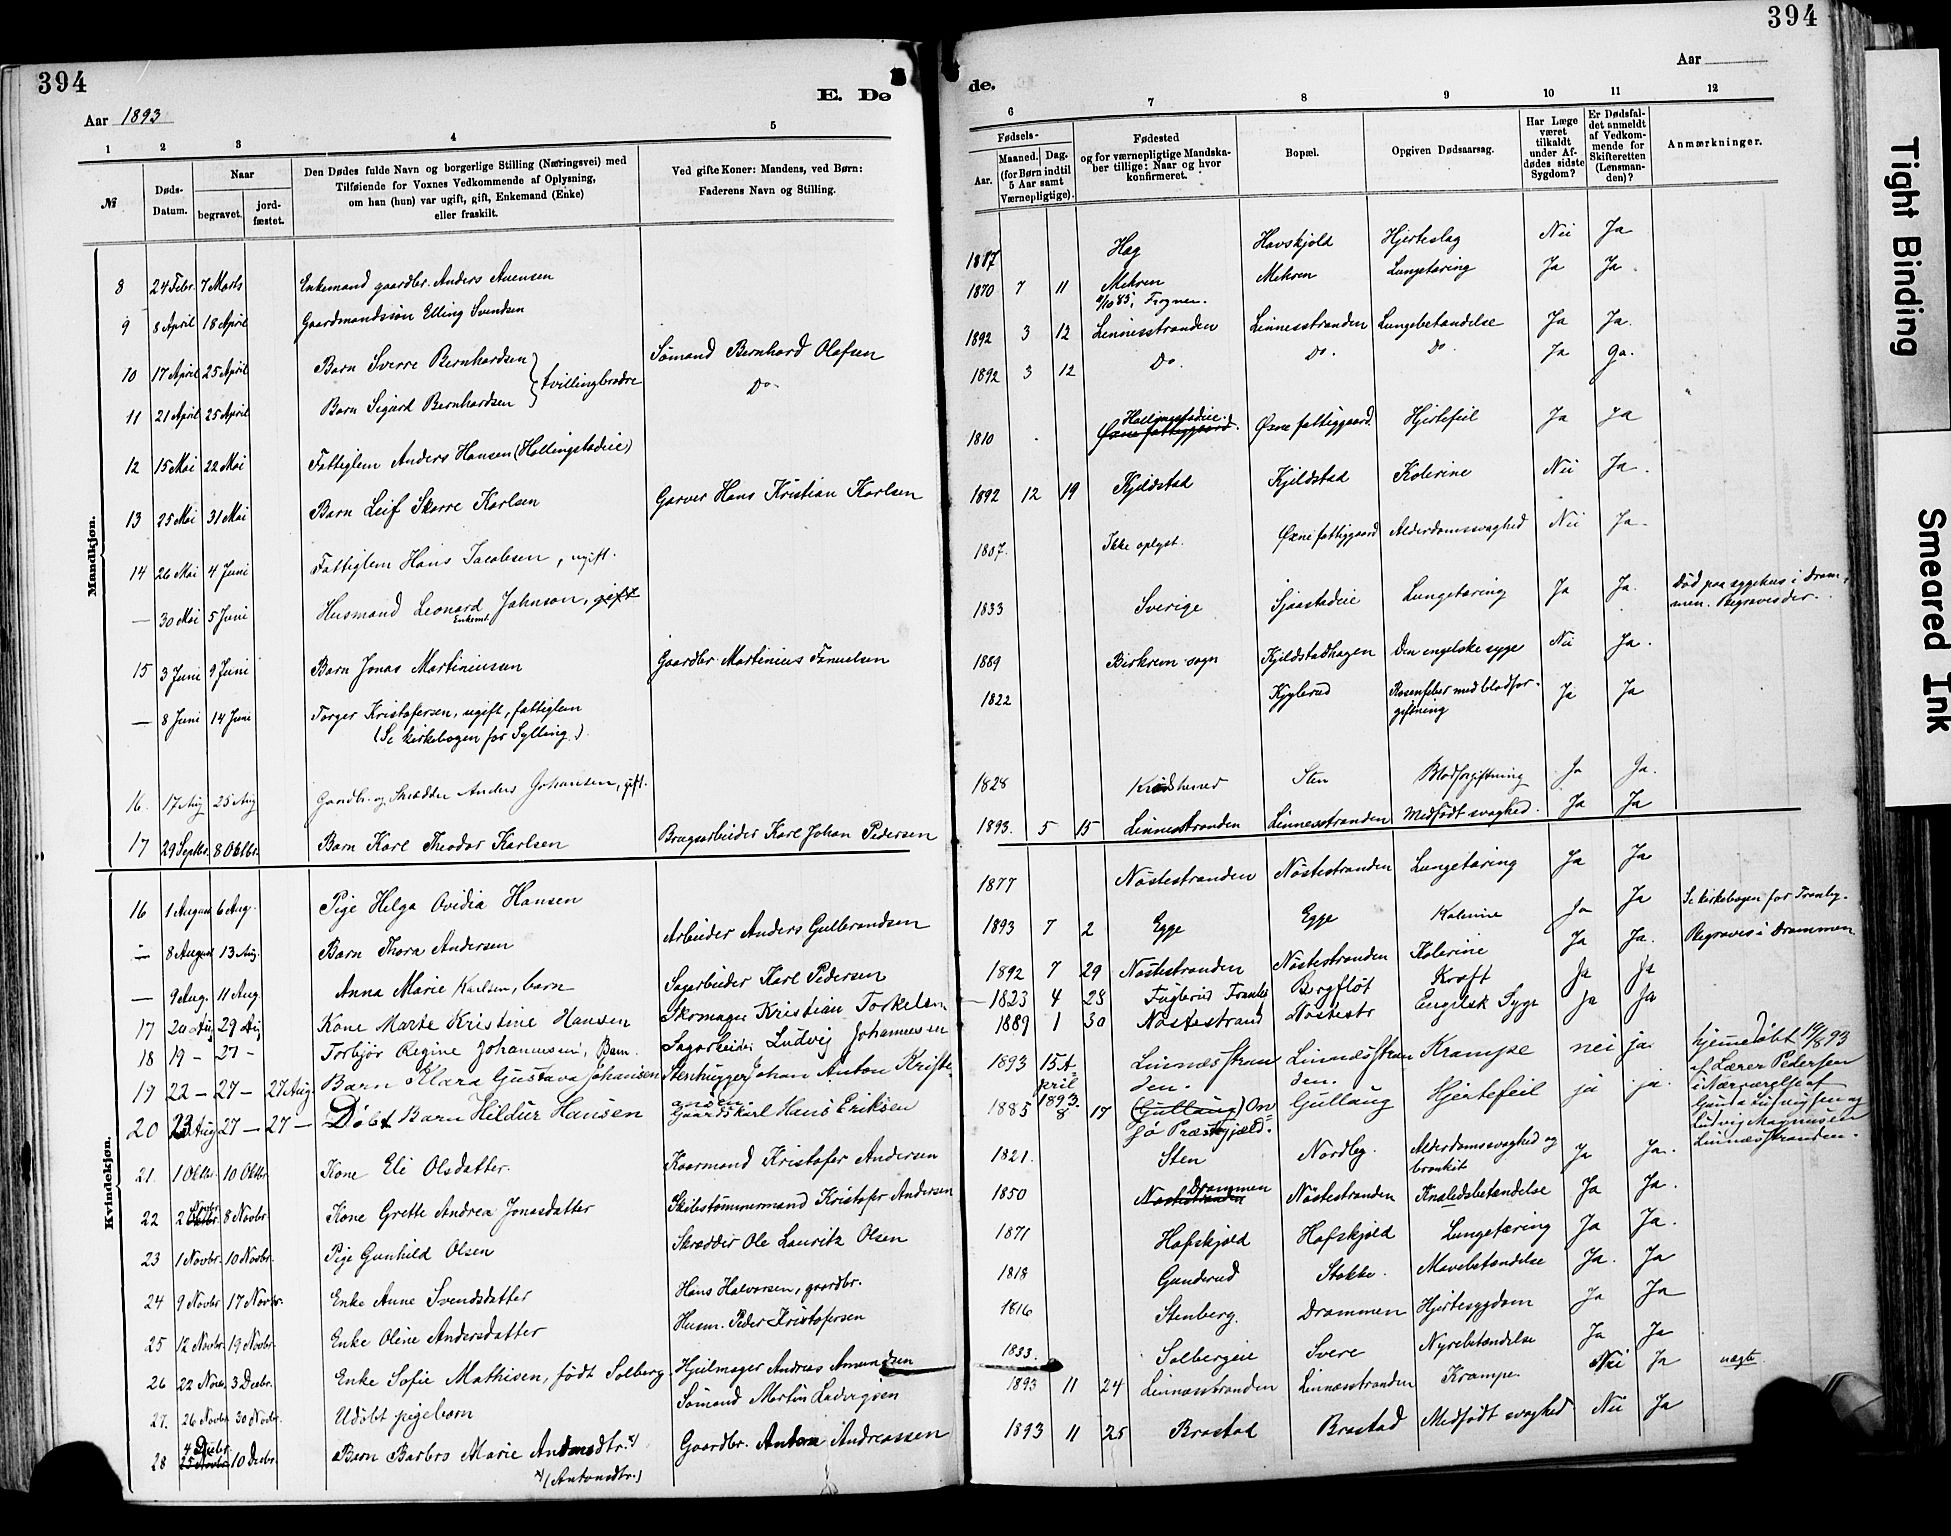 394
394
Aar 1893
E. Dø
de.
Aar
1
2
3
4
5
6
7
8
9
10
11
12
№
Døds-
Datum.
Naar
begravet.
jord-
fæstet.
Den Dødes fulde Navn og borgerlige Stilling (Næringsvei) med
Tilføiende for Voxnes Vedkommende af Oplysning,
om han (hun) var ugift, gift, Enkemand (Enke)
eller fraskilt.
Ved gifte Koner: Mandens, ved Børn:
Faderens Navn og Stilling.
Fødsels-
Aar.
Maaned.
Dag.
(for Børn indtil
5 Aar samt
Værnepligtige).
Fødested
og for værnepligtige Mandska-
ber tillige: Naar og hvor
konfirmeret.
Bopæl.
Opgiven Dødsaarsag.
Har Læge
været
tilkaldt
under Af-
dødes sidste
Sygdom?
Er Dødsfal-
det anmeldt
af Vedkom-
mende for
Skifteretten
(Lensman-
den)?
Anmærkninger.
Mandkjøn.
8 24 Febr. 7 Marts Enkemand gaardbr. Anders Auensen 1817 Hag Havskjold Hjerteslag Nei Ja
9 8 April 18 April Gaardmandssøn Elling Svendsen 1870 7 11 Mehren Mehren Lungetæring Ja Ja
Frogner.
10 17 April 25 April Barn Sverre Bernhardsen Sømand Bernhard Olafsen 1892 3 12 Linnesstranden Linnesstranden Lungebetændelse Ja Ja.
tvillingbrødre
11 21 April 25 April Barn Sigurd Bernhardsen Do 1892 3 12 Do. Do. Do. Ja Ja.
12 15 Mai 22 Mai Fattiglem Anders Hansen (Hallingstadeie) 1810 Hallingstadeie. Øxne fattiggaard. Øxne fattiggaard. Hjertefeil Ja Ja
13 25 Mai 31 Mai Barn Leif Skarre Karlsen Garver Hans Kristian Karlsen 1892 12 19 Kjeldstad Kjeldstad Kolerine Nei Ja.
14 26 Mai 4 Juni Fattiglem Hans Jacobsen, ugift. 1807. Ikke oplyst. Øxne fattiggaard Alderdomssvaghed Nei Ja.
— 30 Mai 5 Juni Husmand Leonard Johnson, gift 1833 Sverige Sjaastadeie Lungetæring Ja Ja. Død paa sygehus i Dram-
Enkemd. men. Begraves der.
15 3 Juni 9 Juni Barn Jonas Martiniussen Gaardbr. Martinius Samuelsen 1889 Birkrem sogn Kjeldstadhagen Den engelske syge Nei Ja.
— 8 Juni 14 Juni Torger Kristofersen, ugift, fattiglem 1822 Rosenfeber med blodfor-
giftning Ja Ja
(Se kirkebogen for Sylling.)
16. 17 Aug 25 Aug Gaardbr. og Skrædder Anders Johansen, gift. 1828 Krødsherred Sten Blodforgiftning Ja Ja.
17 29 Septbr. 8 Oktbr. Barn Karl Theodor Karlsen Brugsarbeider Karl Johan Pedersen 1893. 5 15 Linnesstranden Linnesstranden Medfødt svaghed. Ja Ja
Kvindekjøn.
16 1 August 6 Aug. Pige Helga Ovidia Hansen 1877 Nøstestranden Nøstestranden Lungetæring Ja Ja
— 8 August 13 Aug. Barn Thora Andersen Arbeider Anders Gulbrandsen 1893 7 2 Egge Egge Kolerine Ja Ja Se kirkebogen for Tranby.
— 9 Aug. 11 Aug. Anna Marie Karlsen, barn Sagarbeider Karl Pedersen 1892 7 29 Nøstestranden Nøstestranden Kolerine Ja Ja. Begraves i Drammen
17 20 Aug 29 Aug Kone Marte Kristine Hansen Skomager Kristian Torkelsen 1823 4 28 Fuglerud Tranby Bergfløt Kræft Ja Ja
18 19 - 27 - Torbjør Regine Johannesen, Barn. Sagarbeider Ludvig Johannesen 1889 1 30 Nøstestrand Nøstestr Engelsk Syge Ja Ja
19 22 — 27 — 27 Aug Barn Klara Gustava Johansen Stenhugger Johan Anton Kristi-
ansen. 1893 15 A-
pril
1893 Linnesstran
den. Linnesstran
den. Krampe nei ja. hjemmedøbt 19/8 93
af Lærer Pedersen
i Nærværelse af
Ludvig Magnussen
Linnesstranden.
20 23 Aug 27 — 27 — Døbt Barn Hildur Hansen Gaardskarl Hans Eriksen 1885 8 17 (Gullaug) On
sø Præstgjæld. Gullaug Hjertefeil ja ja.
21. 1 Oktbr. 10 Oktbr. Kone Eli Olsdatter. Kaarmand Kristofer Andersen 1821. Sten Nordby. Alderdomssvaghed og
bronkit Ja Ja.
22 2 Novbr. Oktbr. 8 Novbr. Kone Grette Andrea Jonasdatter Skibstømmermand Kristofer Andersen 1850 Drammen Nøstestranden Nøstestranden Knæledsbetændelse Ja Ja.
23 1 Novbr. 10 Novbr. Pige Gunhild Olsen Skrædder Ole Lauritz Olsen 1871 Hafskjold Hafskjold Lungetæring Ja Ja.
24 9 Novbr 17 Novbr. Enke Anne Svendsdatter Hans Halvorsen, gaardbr. 1818 Gunderud Stokke. Mavebetændelse Ja. Ja
25 12 Novbr. 19 Novbr. Enke Oline Andersdatter Husm. Peder Kristofersen 1816 Stenberg. Drammen Hjertesygdom Ja Ja
26 22 Novbr. 3 Decbr. Enke Sofie Mathisen, født Solberg. Hjulmager Andreas Amundsen 1833. Solbergeie Svere Nyrebetændelse Ja Ja
27. 26 Novbr 30 Novbr. Udøbt pigebarn Sømand Martin Ludvigsen 1893 11 24 Linnesstranden Linnesstranden Krampe. Nei Ja uægte
28 4 Decbr. 25 Novbr. 10 Decbr. Barn Barbro Marie Andersdtr. x) Gaardbr. Anton Andreassen 1893 11 25 Brastad Brastad Medfødt svaghed Nei Ja
x) (Antonsdtr.)
Tight Binding
Smeared Ink